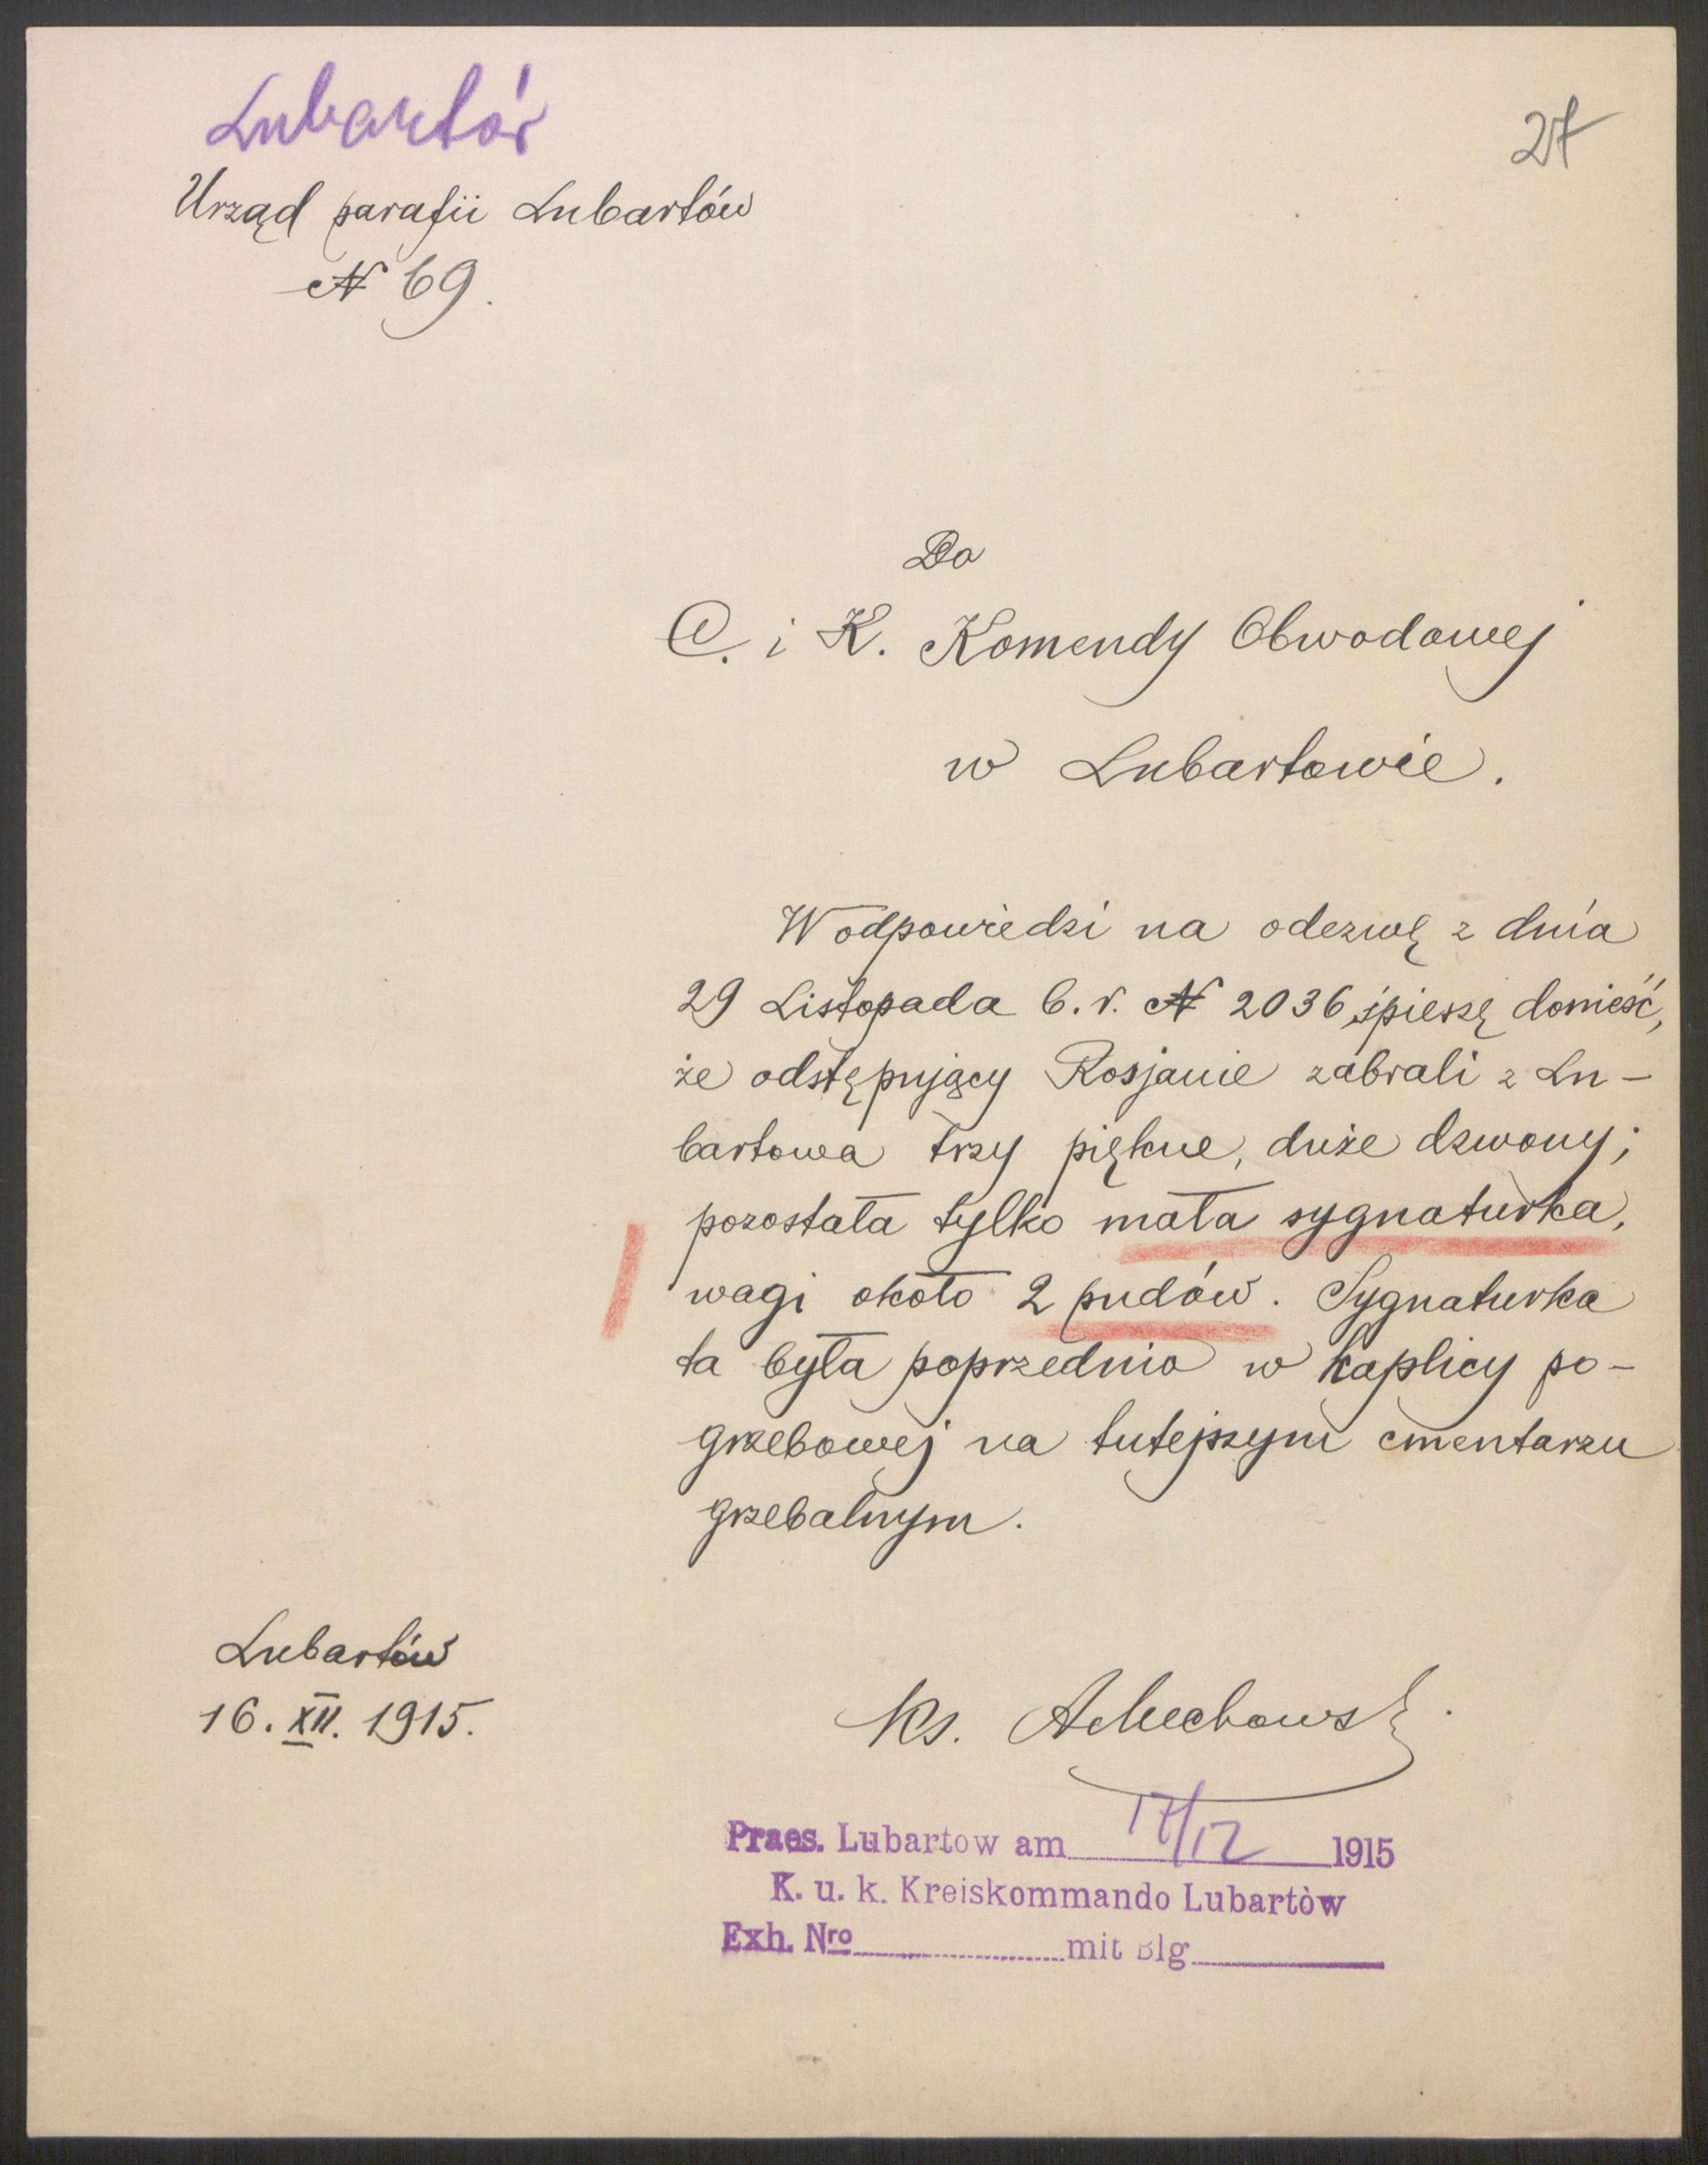 Lubartów
27
Urząd parafii Lubartów
№ 69.
Do
C. i K. Komendy Obwodowej
w Lubartowie.
W odpowiedzi na odezwę z dnia
29 Listopada b.r. № 2036, śpieszę donieść,
że odstępujący Rosjanie zabrali z Lu-
bartowa trzy piękne, duże dzwony;
pozostała tylko mała sygnaturka,
wagi około 2 pudów. Sygnaturka
ta była poprzednio w kaplicy po-
grzebowej na tutejszym cmentarzu
grzebalnym.
Lubartów
16. XII. 1915.
Ks.
Praes. Lubartow am 17/12 1915
K. u. k. Kreiskommando Lubartòw
Exh. Nro mit Blg